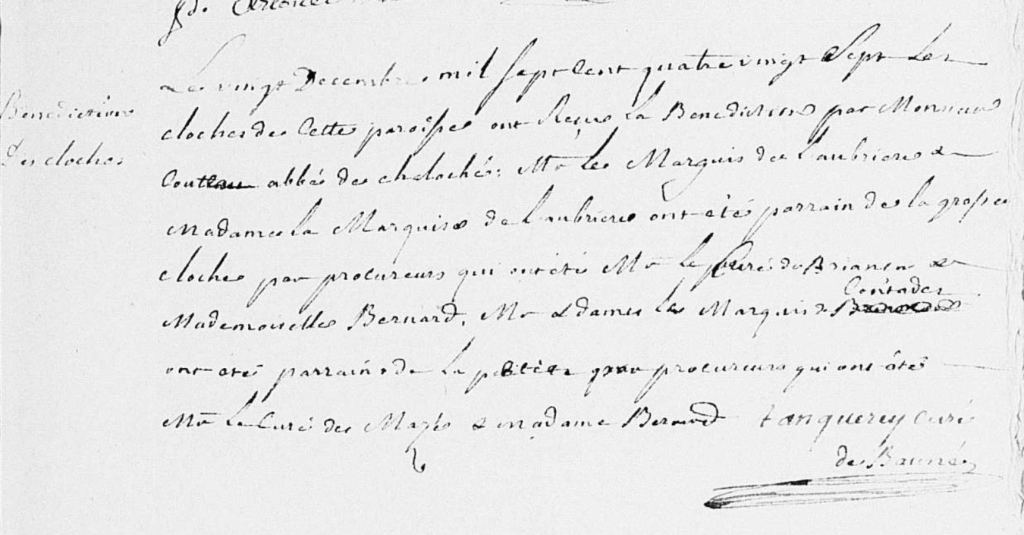 Le vingt Decembre mil sept Cent quatre vingt Sept Les
Benediction
Des cloches
cloches de Cette paroisse ont Reçue La Benediction par Monsieur
abbé de cheloché, Mr Le Marquis de Laubriere &
Madame La Marquise de Laubriere ont été parrain de la grosse
cloche par procureurs qui ont été Mr Le Curé de Briançon &
Mademoiselle Bernard, Mr & dame Le Marquis de Contades
ont été parrains de La petite par procureurs qui ont été
Mr Le Curé de Mazé & Madame Bernard tanquerey curé
de Bauné